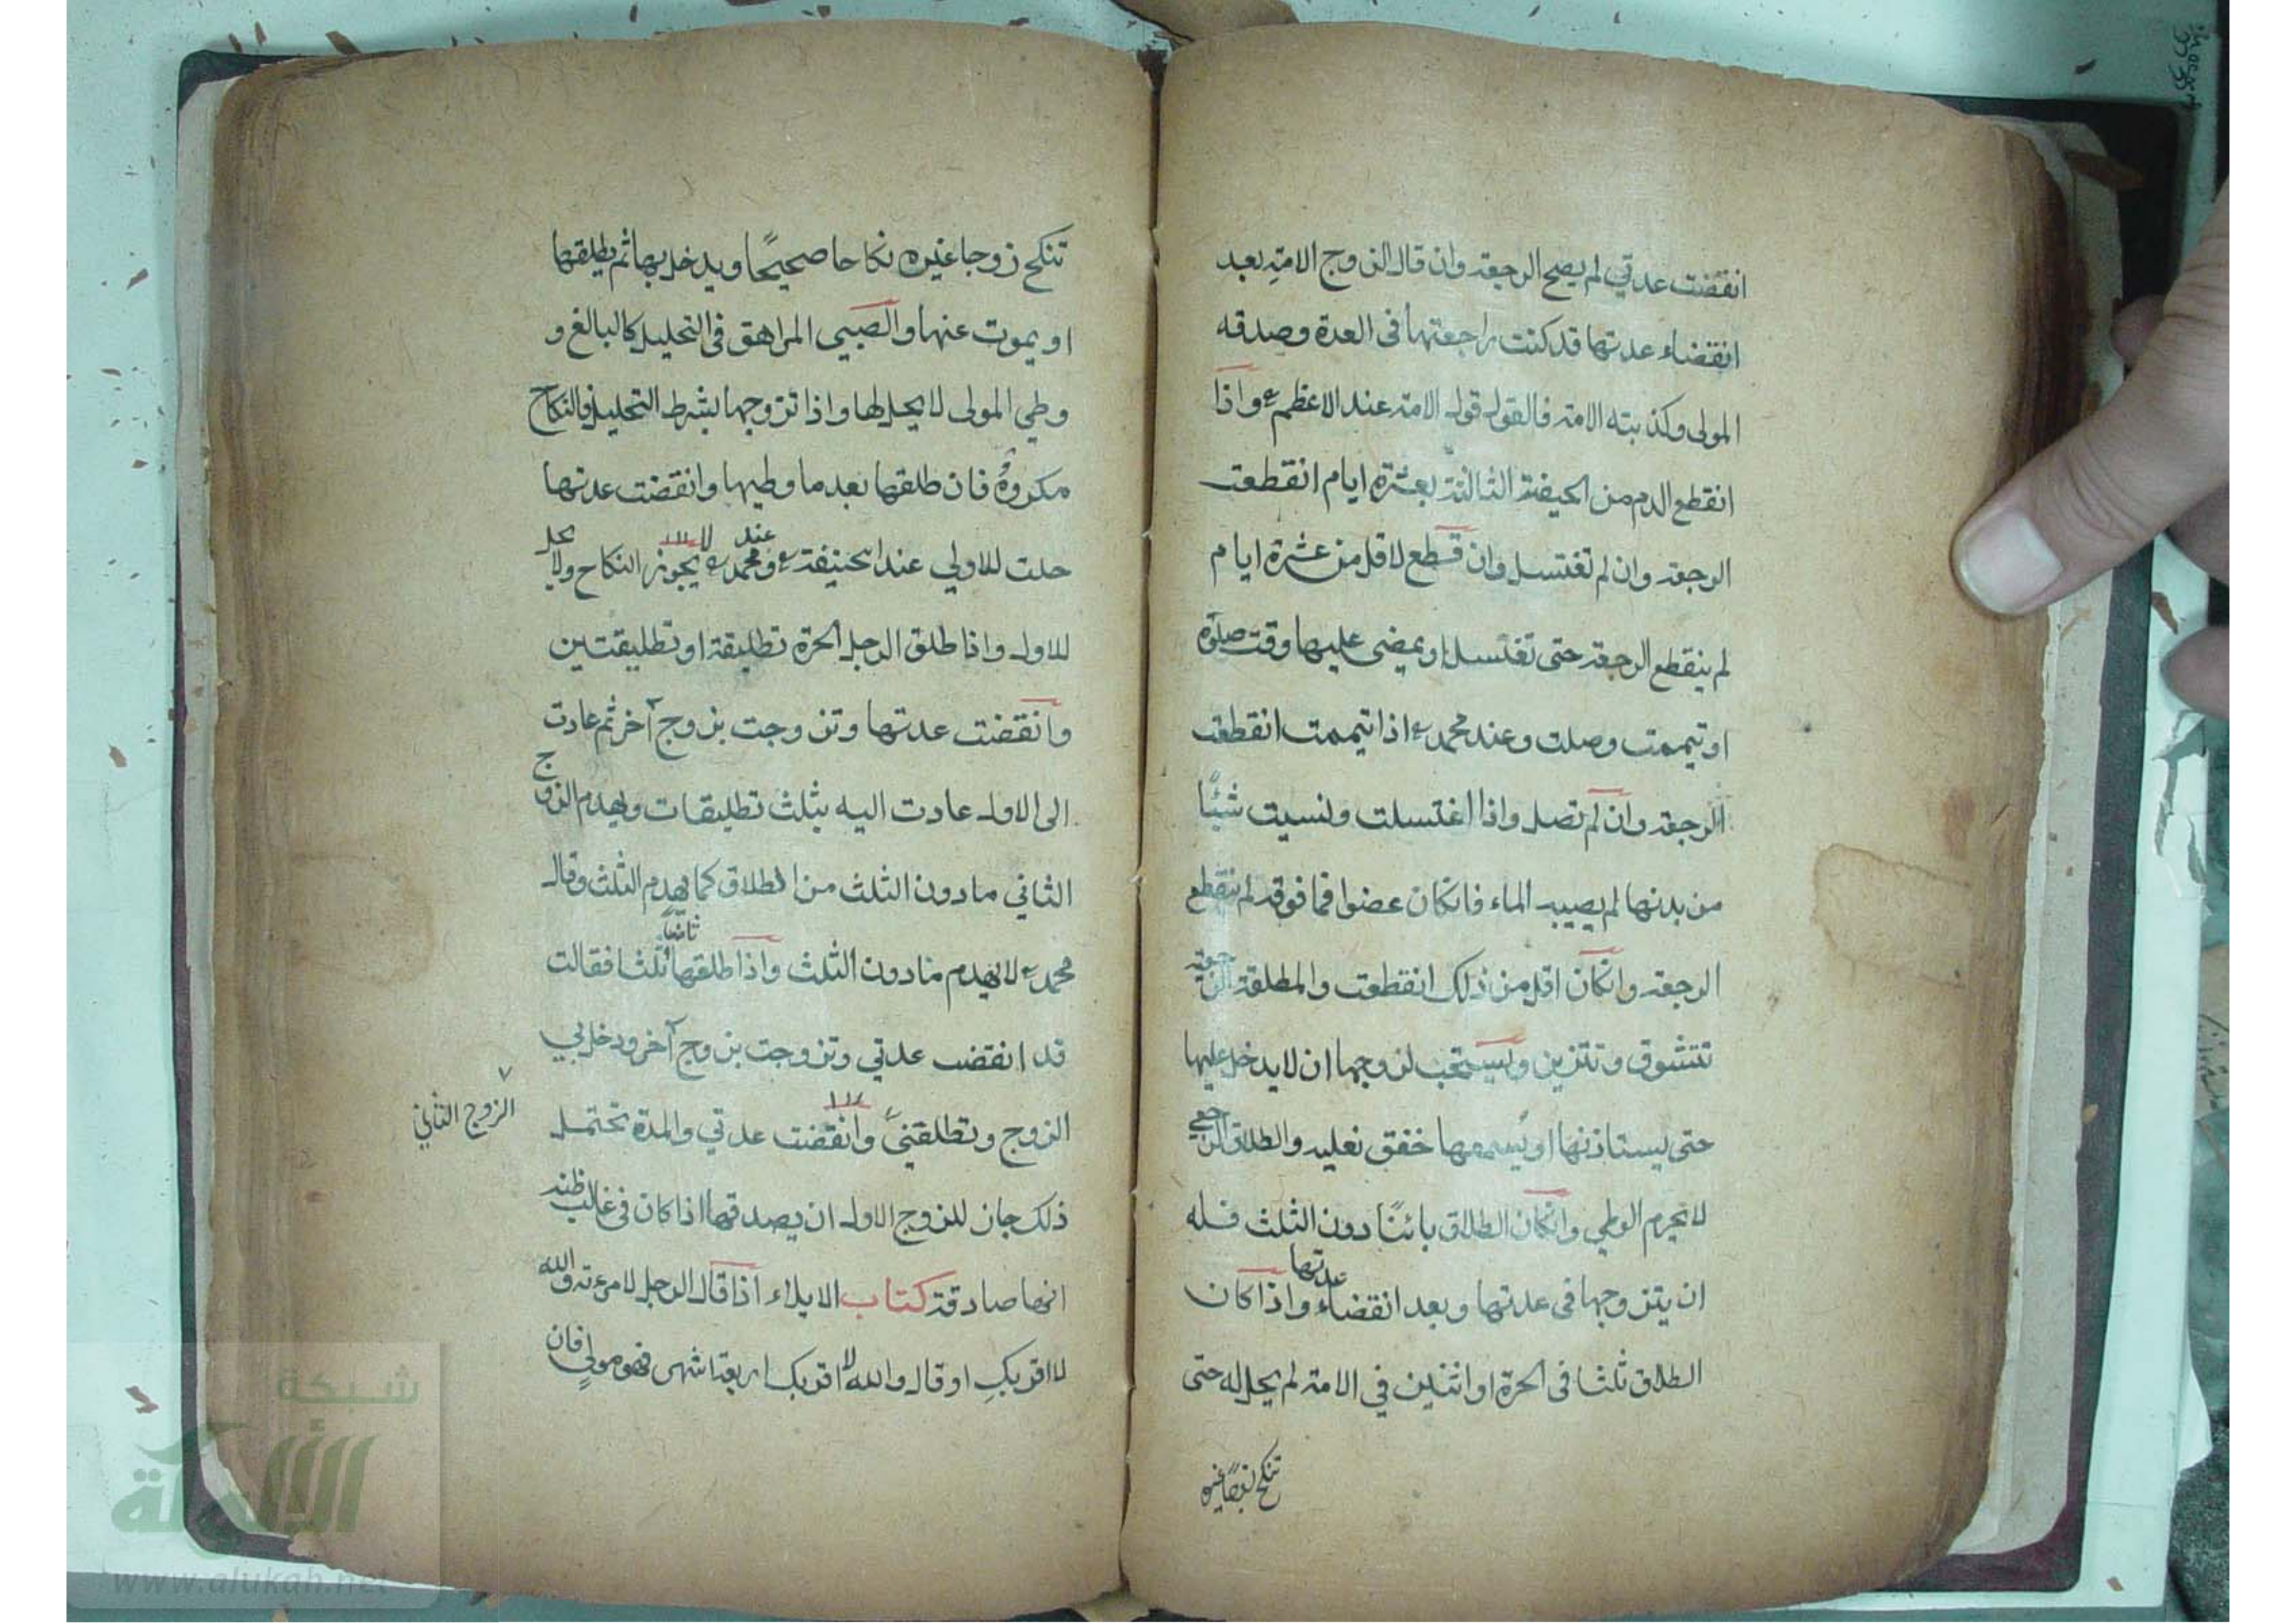 انقضت عدتي لم يصح الرجعة وان قال الزوج الامة بعد
انقضاء عدتها قد كنت راجعتها في العدة وصدقه
المولى وكذبته الامة فالقول قول الامة عند الاعظم واذا
انقطع الدم من الحيضة الثالثة بعشرة ايام انقطعت
الرجعة وان لم تغتسل وان قطع لاقل من عشرة ايام
لم ينقطع الرجعة حتى تغتسل او يمضى عليها وقت صلوة
او تيممت وصلت وعند محمد اذا تيممت انقطعت
الرجعة وان لم تصل واذا اغتسلت ونسيت شيئًا
من بدنها لم يصيبه الماء فانكان عضوا فما فوقه لم ينقطع
الرجعة وانكان اقل من ذلك انقطعت والمطلقة الرجعية
تتشوق وتتزين ويستحب لزوجها ان لا يدخل عليها
حتى يستاذنها او يسمعها خفق نعليه والطلاق الرجعي
لا يحرم الوطي وانكان الطلاق بائنًا دون الثلث فله
ان يتزوجها في عدتها وبعد انقضاء عدتها واذا كان
الطلاق ثلثا في الحرة او اثنين في الامة لم يحل له حتى
تنكح زوجا غيره نكاحا صحيحًا ويدخل بها ثم يطلقها
او يموت عنها والصبي المراهق في التحليل كالبالغ و
وطي المولى لا يحل لها واذا تزوجها بشرط التحليل فالنكاح
مكروهٌ فان طلقها بعد ما وطيها وانقضت عدتها
حلت للاولي عند ابحنيفة وعند محمد يجوز النكاح ولا يحل
للاول واذا طلق الرجل الحرة تطليقة او تطليقتين
وانقضت عدتها وتزوجت بزوج آخر ثم عادت
الى الاول عادت اليه بثلث تطليقات ويهدم الزوج
الثاني مادون الثلث من الطلاق كما يهدم الثلث وقال
محمد لا يهدم مادون الثلث واذا طلقها ثلثا فقالت
قد انقضت عدتي وتزوجت بزوج آخر ودخل بي
الزوج وتطلقني وانقضت عدتي والمدة تحتمل
الزوج الثاني
ذلك جاز للزوج الاول ان يصدقها اذا كان في غالب ظنه
انها صادقة كتاب الايلاء اذا قال الرجل لامرءته والله
لا اقربكِ او قال والله لا اقربك اربعة اشهر فهو مولٍ فان
شبكة
الألوكة
www.alukah.net